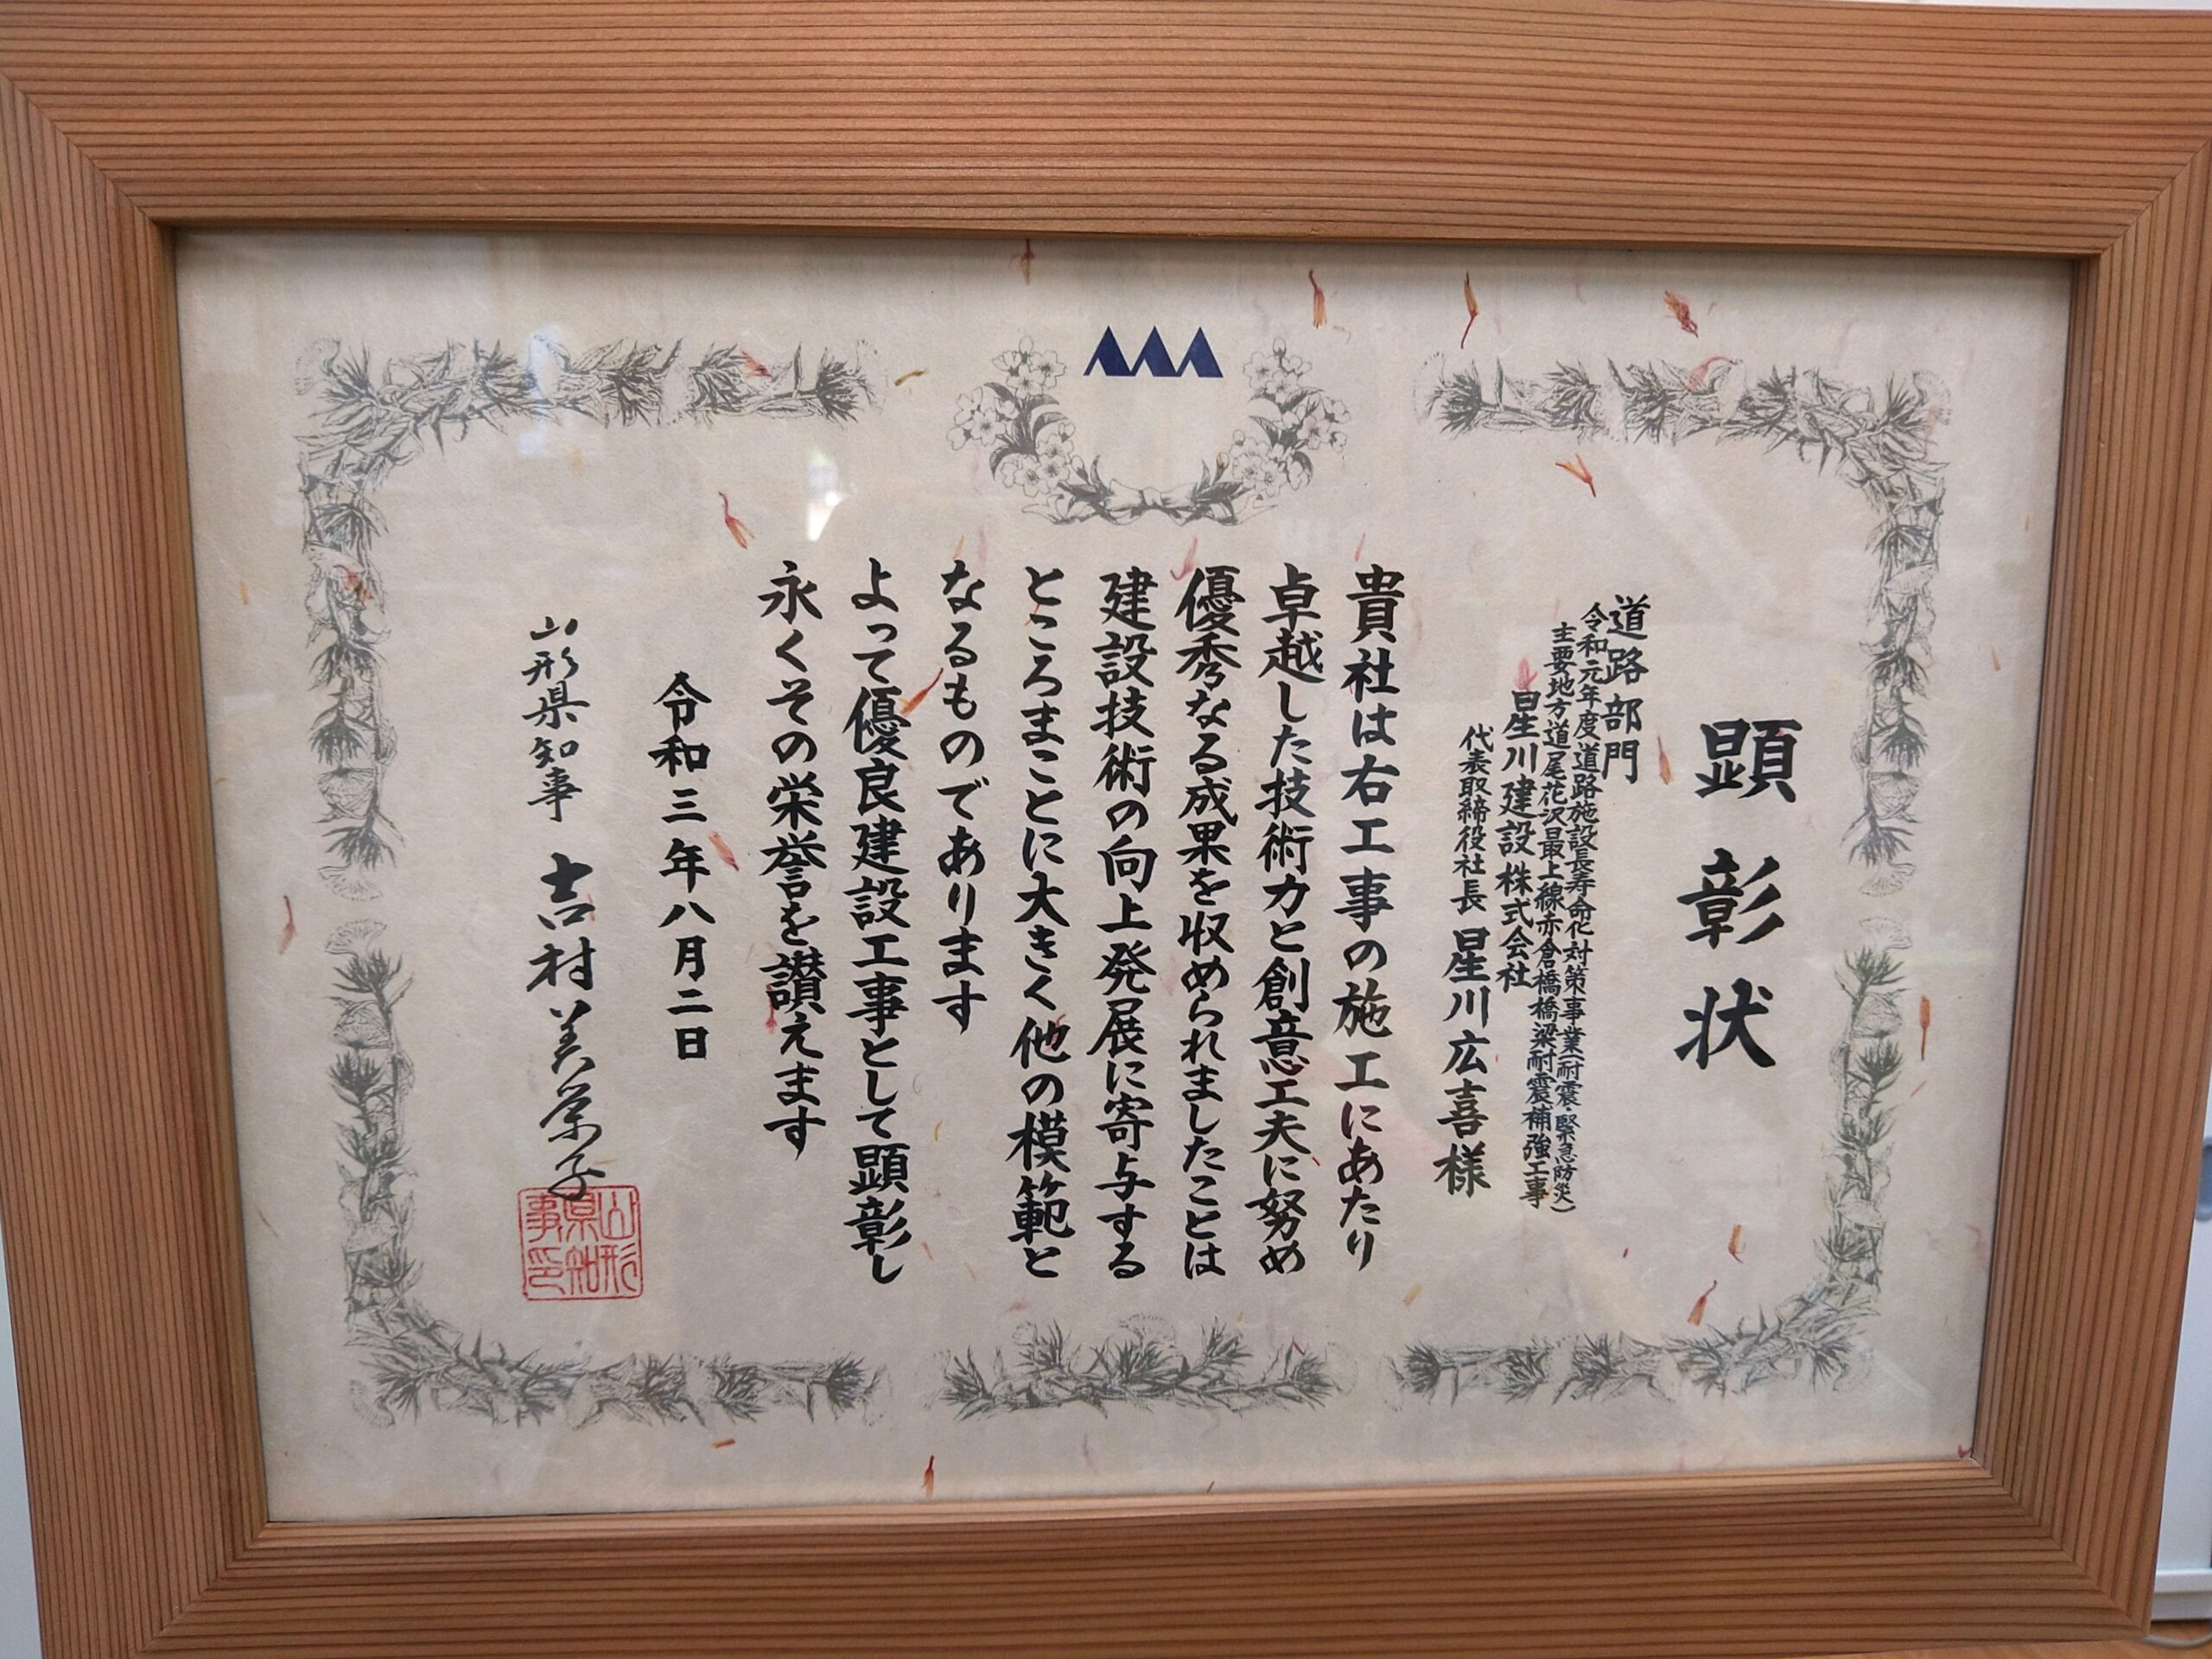 顕彰状
道路部門
令和元年度道路施設長寿命化対策事業(耐震・緊急防災)
主要地方道尾花沢最上線赤倉橋橋梁耐震補強工事
星川建設株式会社
代表取締役社長 星川広喜様
貴社は右工事の施工にあたり
卓越した技術力と創意工夫に努め
優秀なる成果を収められましたことは
建設技術の向上発展に寄与する
ところまことに大きく他の模範と
なるものであります
よって優良建設工事として顕彰し
永くその栄誉を讃えます
令和三年八月二日
山形県知事 吉村美栄子
山形県知事印